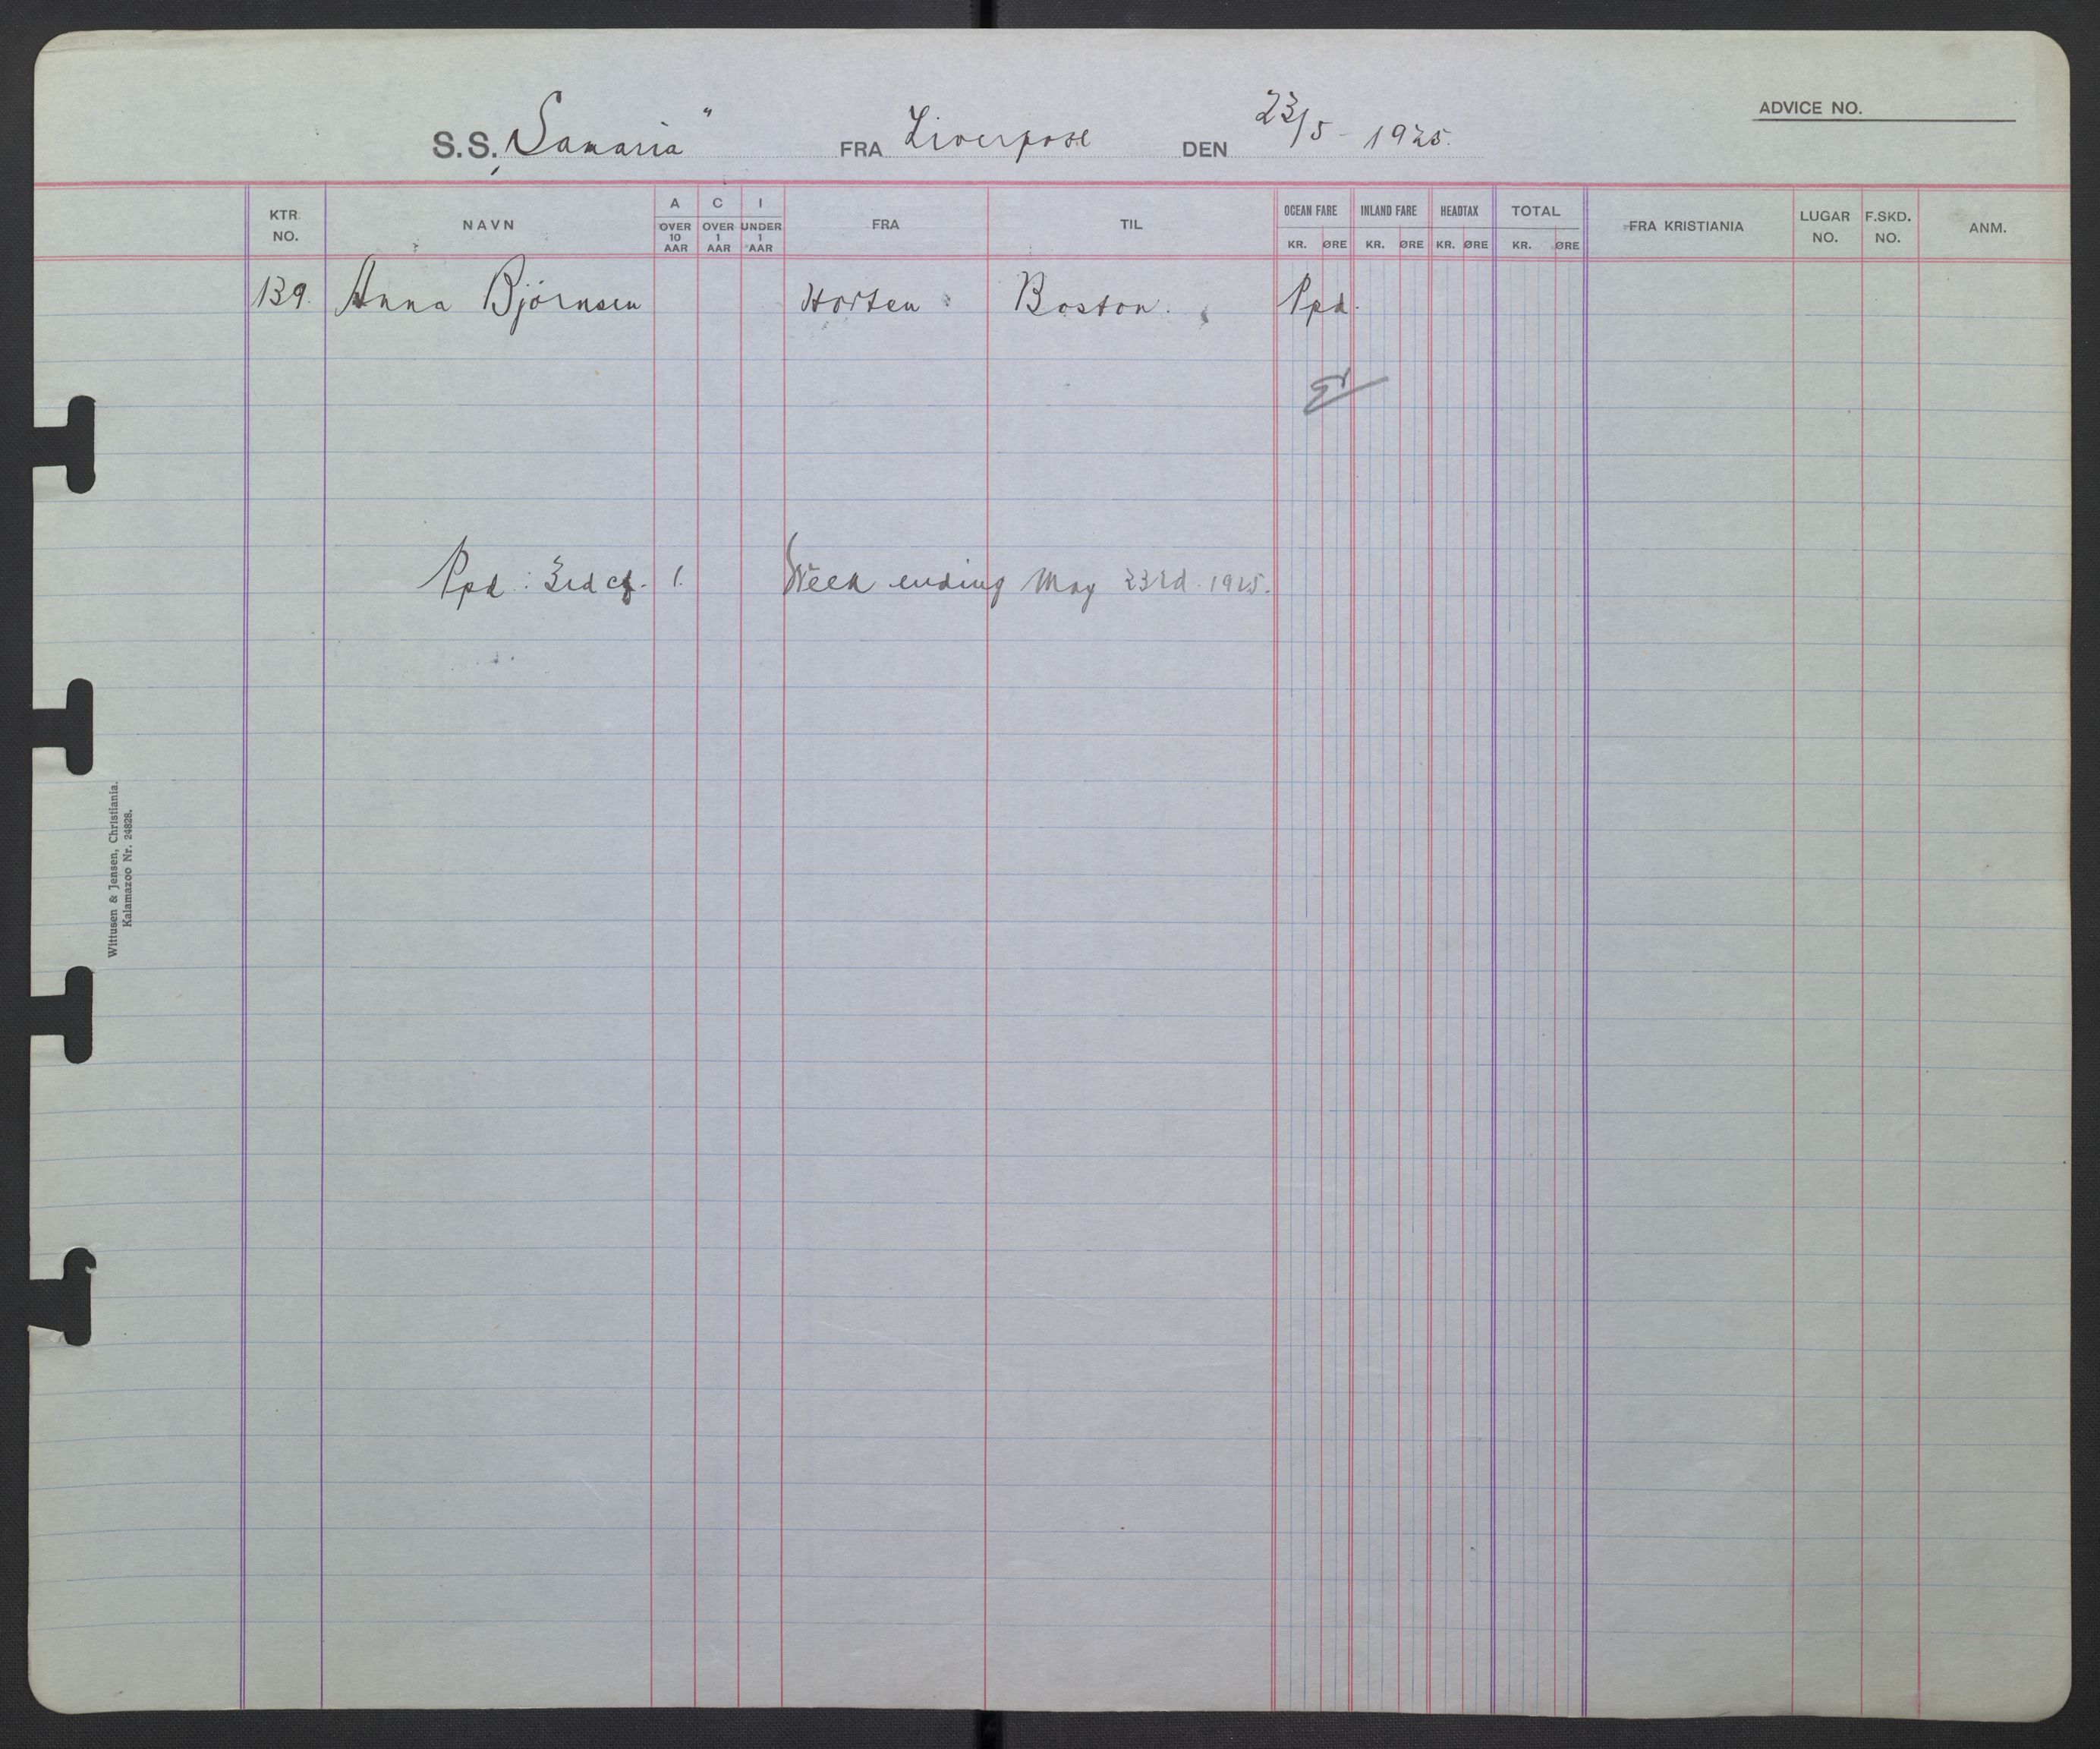 ADVICE NO.
S.S. „Samaria" FRA Liverpool DEN 23/5 - 1925.
KTR. NO. NAVN A OVER 10 AAR C OVER 1 AAR I UNDER 1 AAR FRA TIL OCEAN FARE KR. ØRE INLAND FARE KR. ØRE HEADTAX KR. ØRE TOTAL KR. ØRE FRA KRISTIANIA LUGAR NO. F.SKD. NO. ANM.
139. Anna Björnsen Horten Boston. Ppd.
Ppd: 3rd cl. 1. Week ending May 23rd 1925.
Wittusen & Jensen, Christiania.
Kalamazoo Nr. 24828.